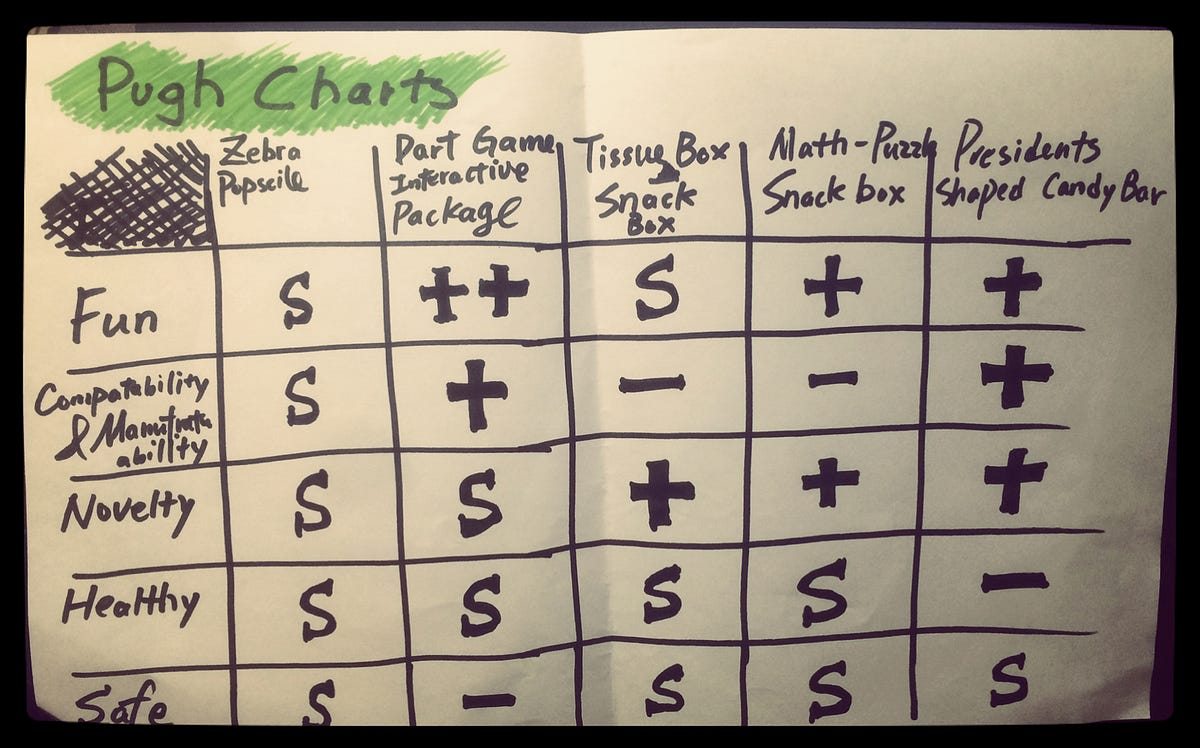 Pugh Charts
Zebra
Popscile
Dart Game
Interactive
Package
Tissue Box
Snack
Box
Math-Puzzle
Snack box
Presidents
shaped Candy Bar
Fun S ++ S + +
Compatability
&
ability S + − − +
Novelty S S + + +
Healthy S S S S −
Safe S − S S S